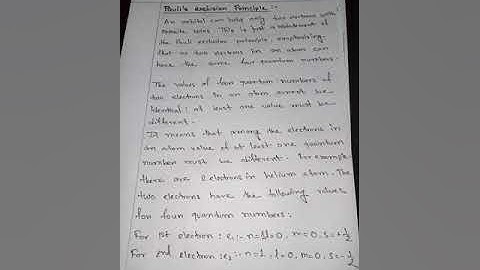 Pauli's exclusion Principle :-
An orbital can hold only two electrons with
opposite spins. This is just a statement of
the Pauli exclusion principle, emphasising
that no two electrons in an atom can
have the same four quantum numbers.
The values of four quantum numbers of
two electrons in an atom cannot be
identical; at least one value must be
different.
It means that among the electrons in
an atom value of at least one quantum
number must be different. For example
there are 2 electrons in helium atom. The
two electrons have the following values
for four quantum numbers:
For 1st electron : e₁ :- n=1, l=0, m=0, s=+1/2
For 2nd electron : e₂ :- n=1, l=0, m=0, s=-1/2